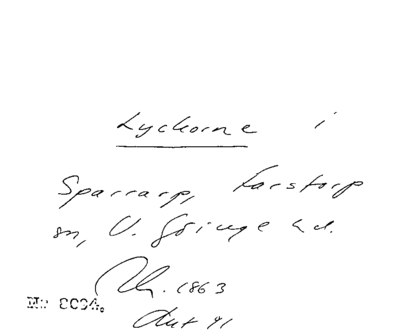 Lyckorne i
Sparrarp, Farstorp
sn, V. Göinge hd.
1863
No 8094.
Aut 91